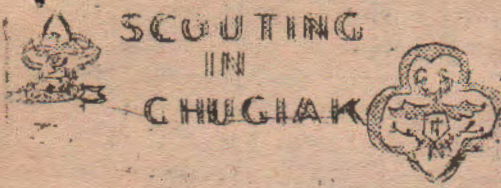 SCOUTING
IN
CHUGIAK